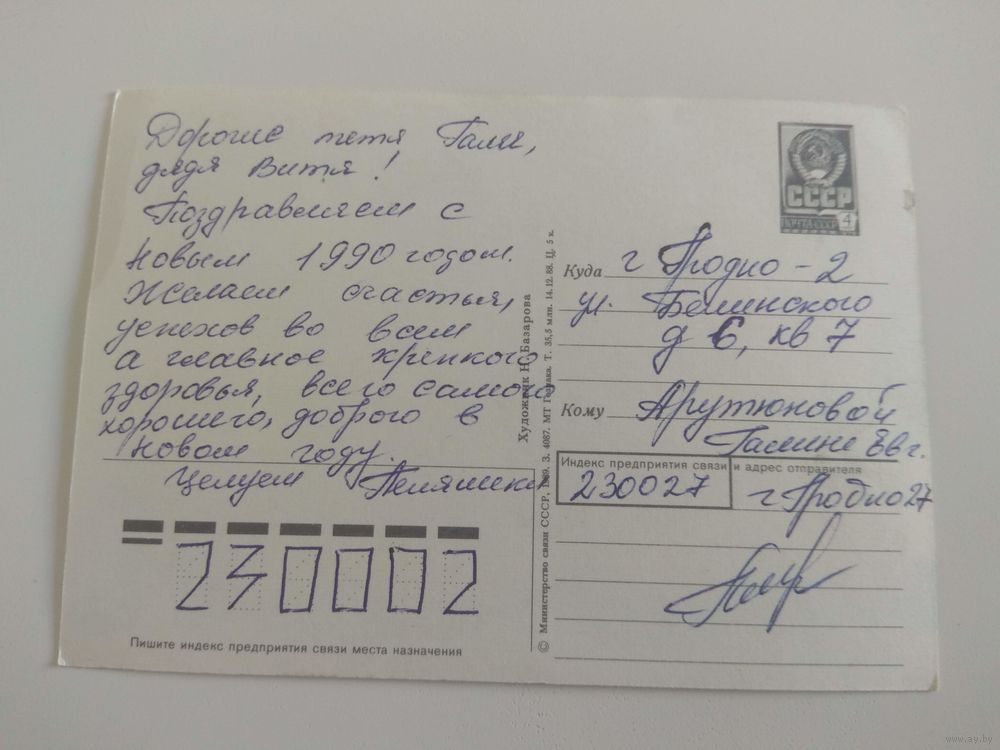 Дорогие тетя Галя,
дядя Витя!
Поздравляем с
Новым 1990 годом.
Желаем счастья,
успехов во всем
а главное крепкого
здоровья, всего самого
хорошего, доброго в
Новом году.
Целуем
230002
Пишите индекс предприятия связи места назначения
Художник Н. Базарова
© Министерство связи СССР, 1989. З. 4087. МТ Гознака. Т. 35,5 млн. 14.12.88. Ц. 5 к.
СССР
ПОЧТА СССР
4
Куда г Гродно-2
ул. Белинского
д 6, кв 7
Кому Арутюновой
Галине Евг.
Индекс предприятия связи и адрес отправителя
230027 г Гродно 27
www.ay.by